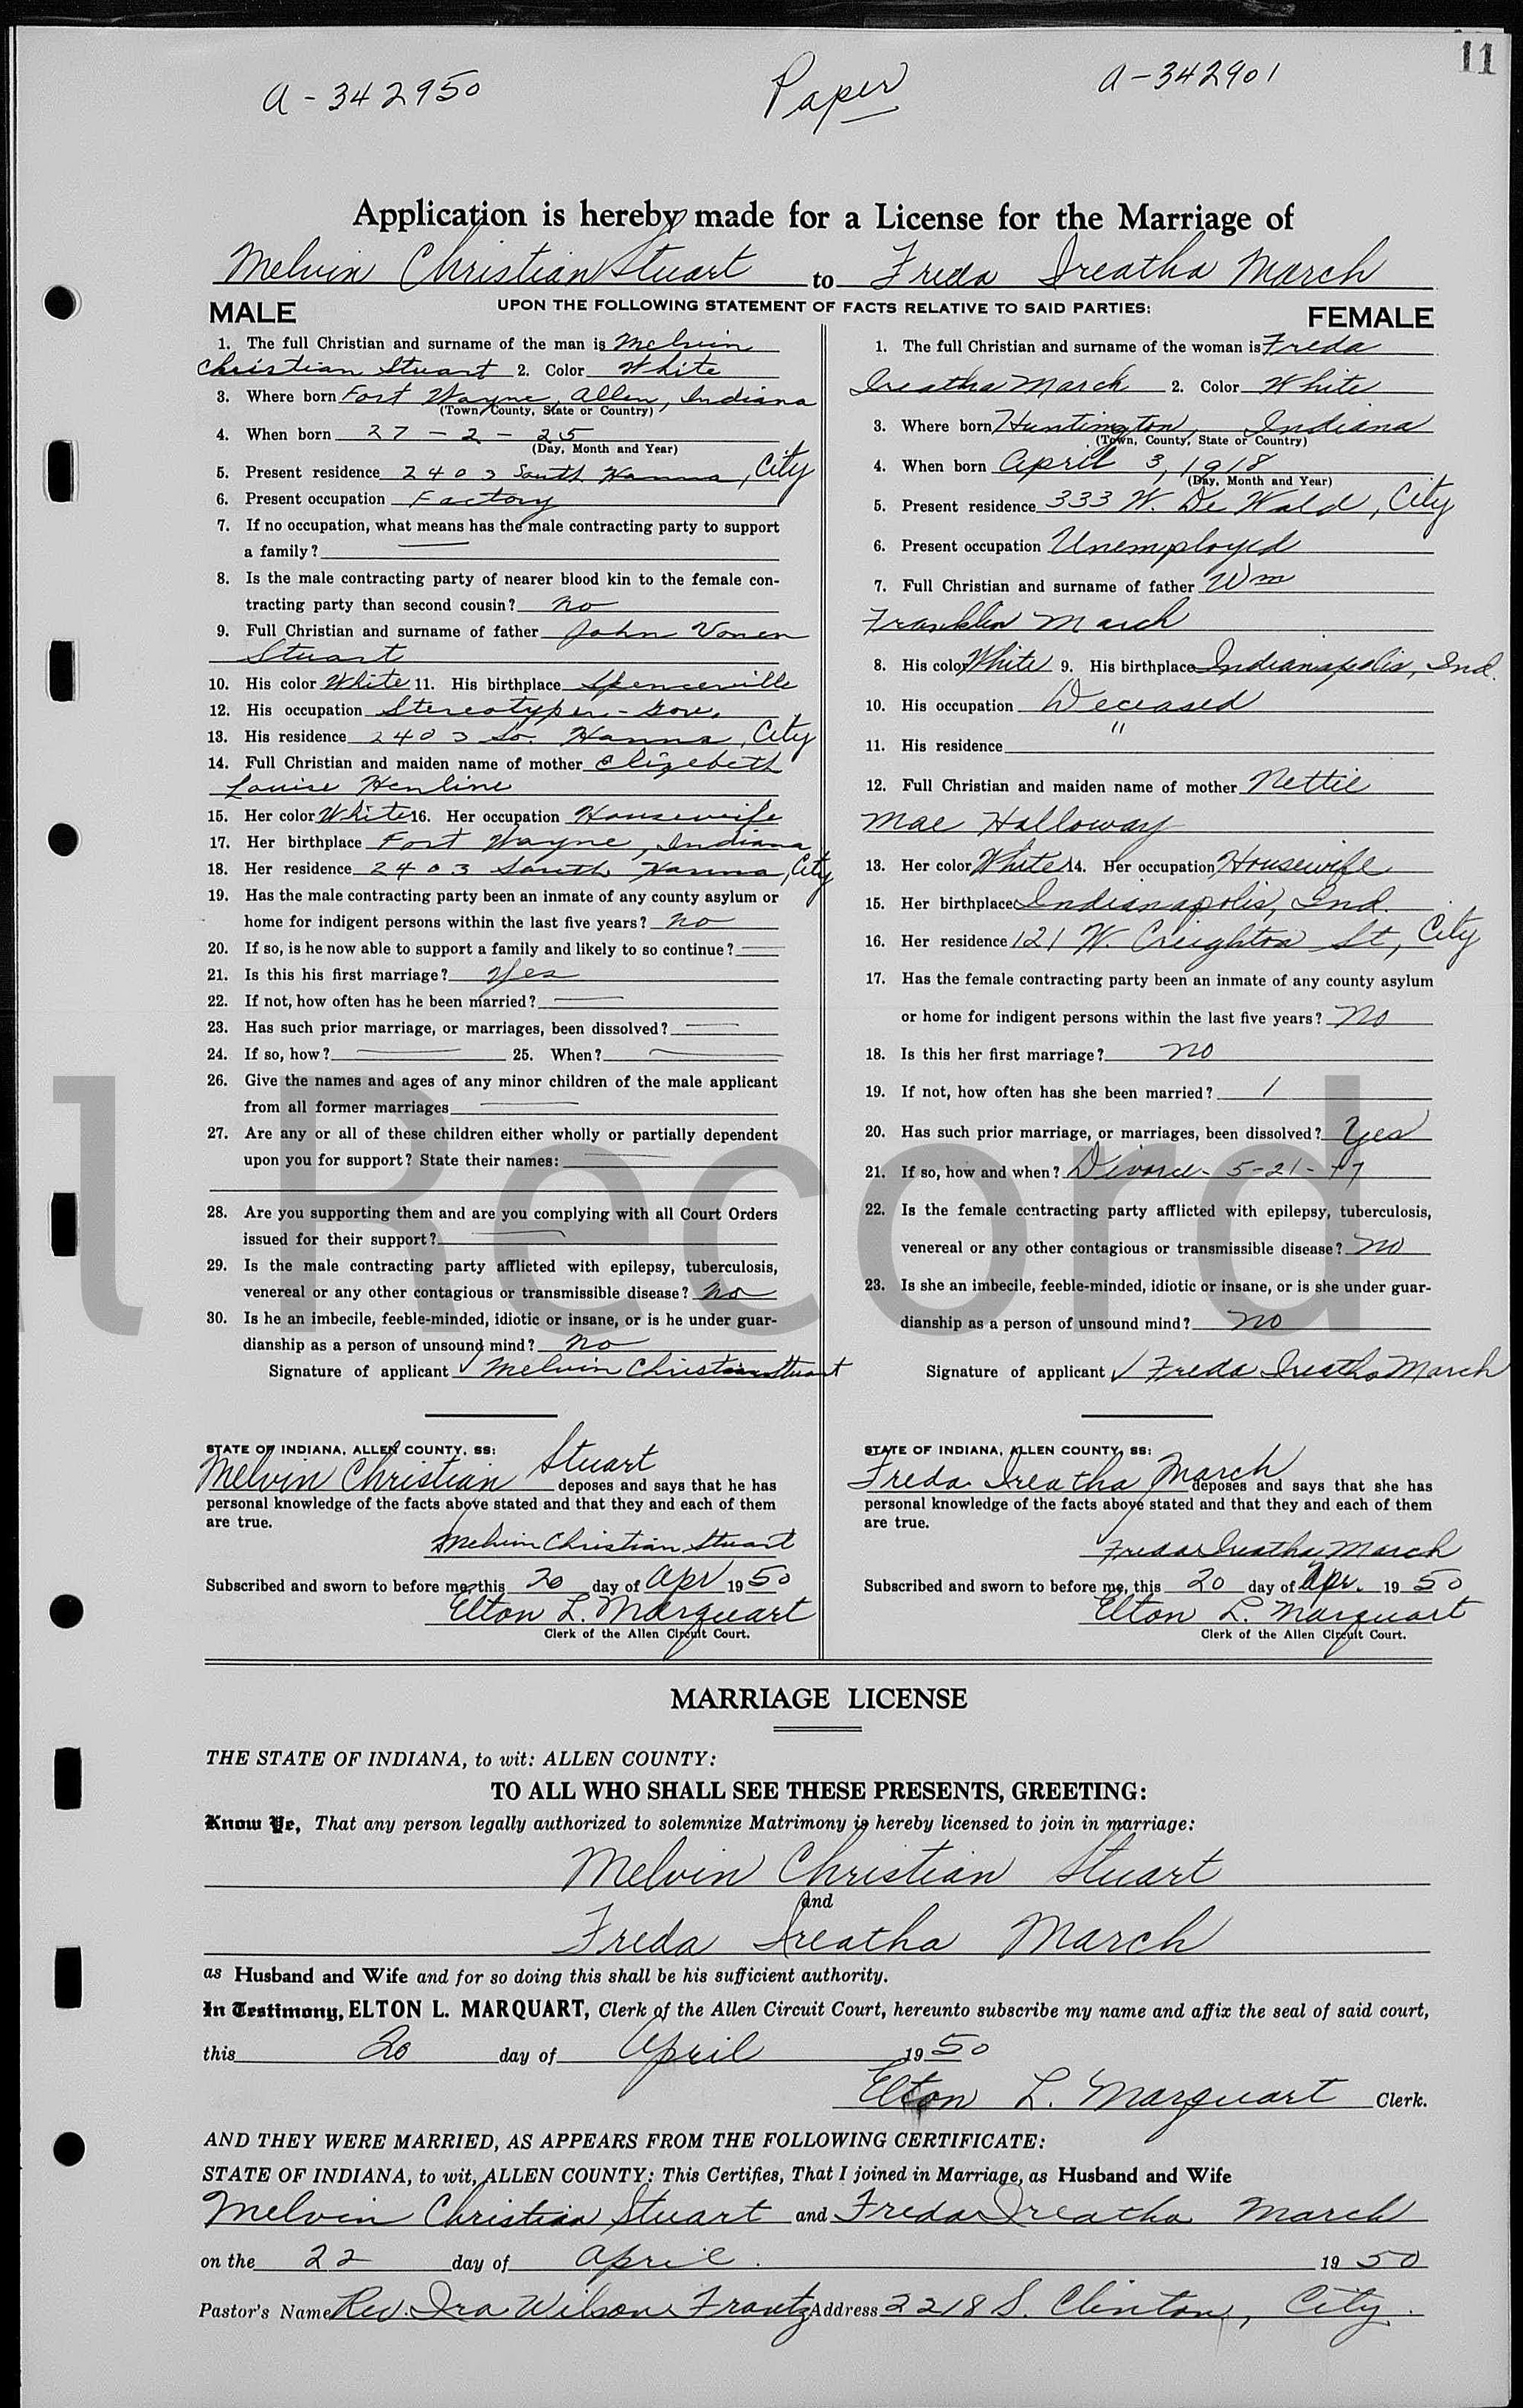 11
A-342950 Paper A-342901
Application is hereby made for a License for the Marriage of
Melvin Christian Stuart to Freda Ireatha March
UPON THE FOLLOWING STATEMENT OF FACTS RELATIVE TO SAID PARTIES:
MALE
1. The full Christian and surname of the man is Melvin
Christian Stuart 2. Color White
3. Where born Fort Wayne, Allen, Indiana
(Town, County, State or Country)
4. When born 27 - 2 - 25
(Day, Month and Year)
5. Present residence 2403 South Hanna, City
6. Present occupation Factory
7. If no occupation, what means has the male contracting party to support
a family? —
8. Is the male contracting party of nearer blood kin to the female con-
tracting party than second cousin? no
9. Full Christian and surname of father John Vonen
Stuart
10. His color White 11. His birthplace Spencerville
12. His occupation Stereotyper -
13. His residence 2403 So. Hanna, City
14. Full Christian and maiden name of mother Elizebeth
Louise Henline
15. Her color White 16. Her occupation Housewife
17. Her birthplace Fort Wayne, Indiana
18. Her residence 2403 South Hanna, City
19. Has the male contracting party been an inmate of any county asylum or
home for indigent persons within the last five years? no
20. If so, is he now able to support a family and likely to so continue? —
21. Is this his first marriage? Yes
22. If not, how often has he been married? —
23. Has such prior marriage, or marriages, been dissolved? —
24. If so, how? — 25. When? —
26. Give the names and ages of any minor children of the male applicant
from all former marriages —
27. Are any or all of these children either wholly or partially dependent
upon you for support? State their names: —
28. Are you supporting them and are you complying with all Court Orders
issued for their support? —
29. Is the male contracting party afflicted with epilepsy, tuberculosis,
venereal or any other contagious or transmissible disease? No
30. Is he an imbecile, feeble-minded, idiotic or insane, or is he under guar-
dianship as a person of unsound mind? No
Signature of applicant ✓ Melvin Christian Stuart
STATE OF INDIANA, ALLEN COUNTY, SS:
Melvin Christian Stuart deposes and says that he has
personal knowledge of the facts above stated and that they and each of them
are true.
Melvin Christian Stuart
Subscribed and sworn to before me, this 20 day of Apr 1950
Elton L. Marquart
Clerk of the Allen Circuit Court.
FEMALE
1. The full Christian and surname of the woman is Freda
Ireatha March 2. Color White
3. Where born Huntington, Indiana
(Town, County, State or Country)
4. When born April 3, 1918
(Day, Month and Year)
5. Present residence 333 W. De Wald, City
6. Present occupation Unemployed
7. Full Christian and surname of father Wm
Franklin March
8. His color White 9. His birthplace Indianapolis, Ind.
10. His occupation Deceased
11. His residence "
12. Full Christian and maiden name of mother Nettie
Mae Halloway
13. Her color White 14. Her occupation Housewife
15. Her birthplace Indianapolis, Ind.
16. Her residence 121 W. Creighton St, City
17. Has the female contracting party been an inmate of any county asylum
or home for indigent persons within the last five years? No
18. Is this her first marriage? no
19. If not, how often has she been married? 1
20. Has such prior marriage, or marriages, been dissolved? Yes
21. If so, how and when? Divorce - 5-21-47
22. Is the female contracting party afflicted with epilepsy, tuberculosis,
venereal or any other contagious or transmissible disease? No
23. Is she an imbecile, feeble-minded, idiotic or insane, or is she under guar-
dianship as a person of unsound mind? no
Signature of applicant ✓ Freda Ireatha March
STATE OF INDIANA, ALLEN COUNTY, SS:
Freda Ireatha March deposes and says that she has
personal knowledge of the facts above stated and that they and each of them
are true.
Freda Ireatha March
Subscribed and sworn to before me, this 20 day of Apr. 1950
Elton L. Marquart
Clerk of the Allen Circuit Court.
l Record
MARRIAGE LICENSE
THE STATE OF INDIANA, to wit: ALLEN COUNTY:
TO ALL WHO SHALL SEE THESE PRESENTS, GREETING:
Know Ye, That any person legally authorized to solemnize Matrimony is hereby licensed to join in marriage:
Melvin Christian Stuart
and
Freda Ireatha March
as Husband and Wife and for so doing this shall be his sufficient authority.
In Testimony, ELTON L. MARQUART, Clerk of the Allen Circuit Court, hereunto subscribe my name and affix the seal of said court,
this 20 day of April 1950
Elton L. Marquart Clerk.
AND THEY WERE MARRIED, AS APPEARS FROM THE FOLLOWING CERTIFICATE:
STATE OF INDIANA, to wit, ALLEN COUNTY: This Certifies, That I joined in Marriage, as Husband and Wife
Melvin Christian Stuart and Freda Ireatha March
on the 22 day of April. 1950
Pastor's Name Rev. Ira Wilson Frantz Address 2218 S. Clinton, City.